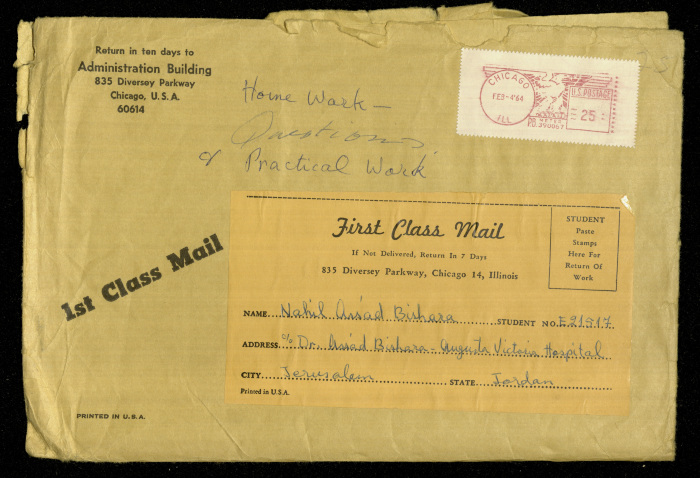 Return in ten days to
Administration Building
835 Diversey Parkway
Chicago, U.S.A.
60614
Home Work —
Questions
& Practical Work
CHICAGO
FEB-4'64
ILL
U.S. POSTAGE
25
P.B. METER
1st Class Mail
First Class Mail
If Not Delivered, Return In 7 Days
835 Diversey Parkway, Chicago 14, Illinois
STUDENT
Paste
Stamps
Here For
Return Of
Work
NAME Nahil Assad Bishara STUDENT NO. E21517
ADDRESS c/o Dr. Assad Bishara - Augusta Victoria Hospital
CITY Jerusalem STATE Jordan
Printed in U.S.A.
PRINTED IN U.S.A.